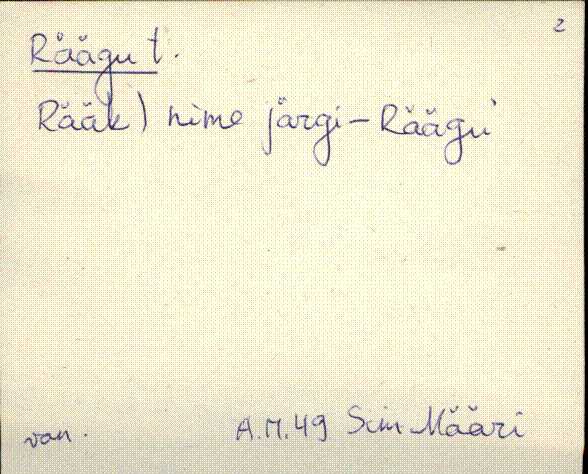 2
Räägu t.
Rääk) nime järgi – Räägu'
van. A.M.49 Sim Määri